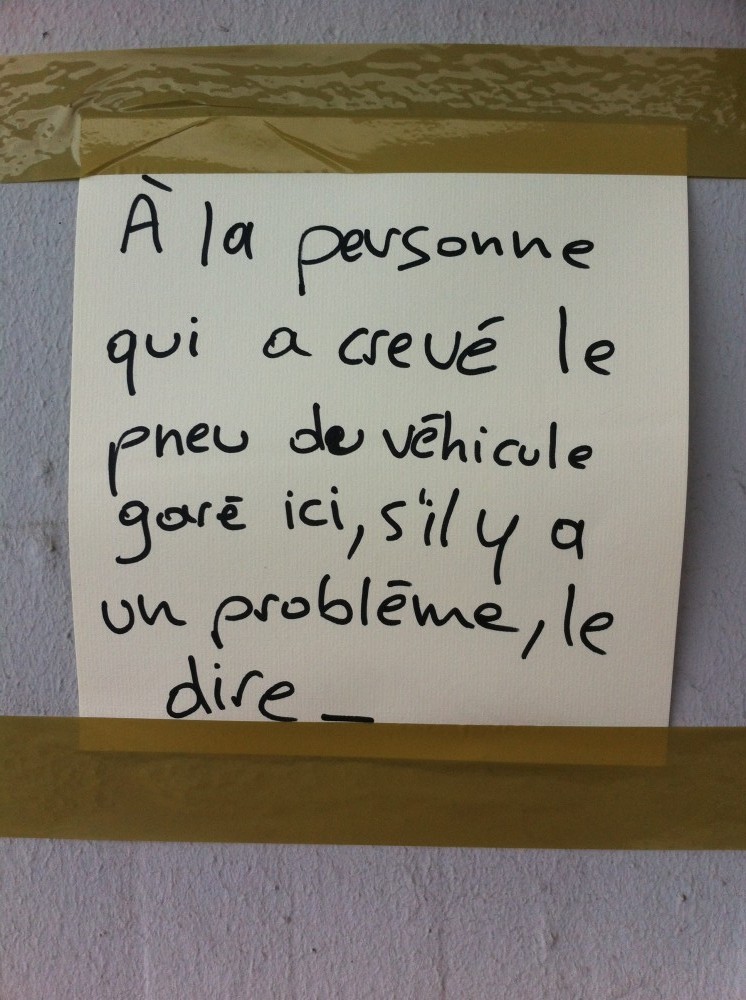 À la personne
qui a crevé le
pneu du véhicule
garé ici, s'il y a
un problème, le
dire _